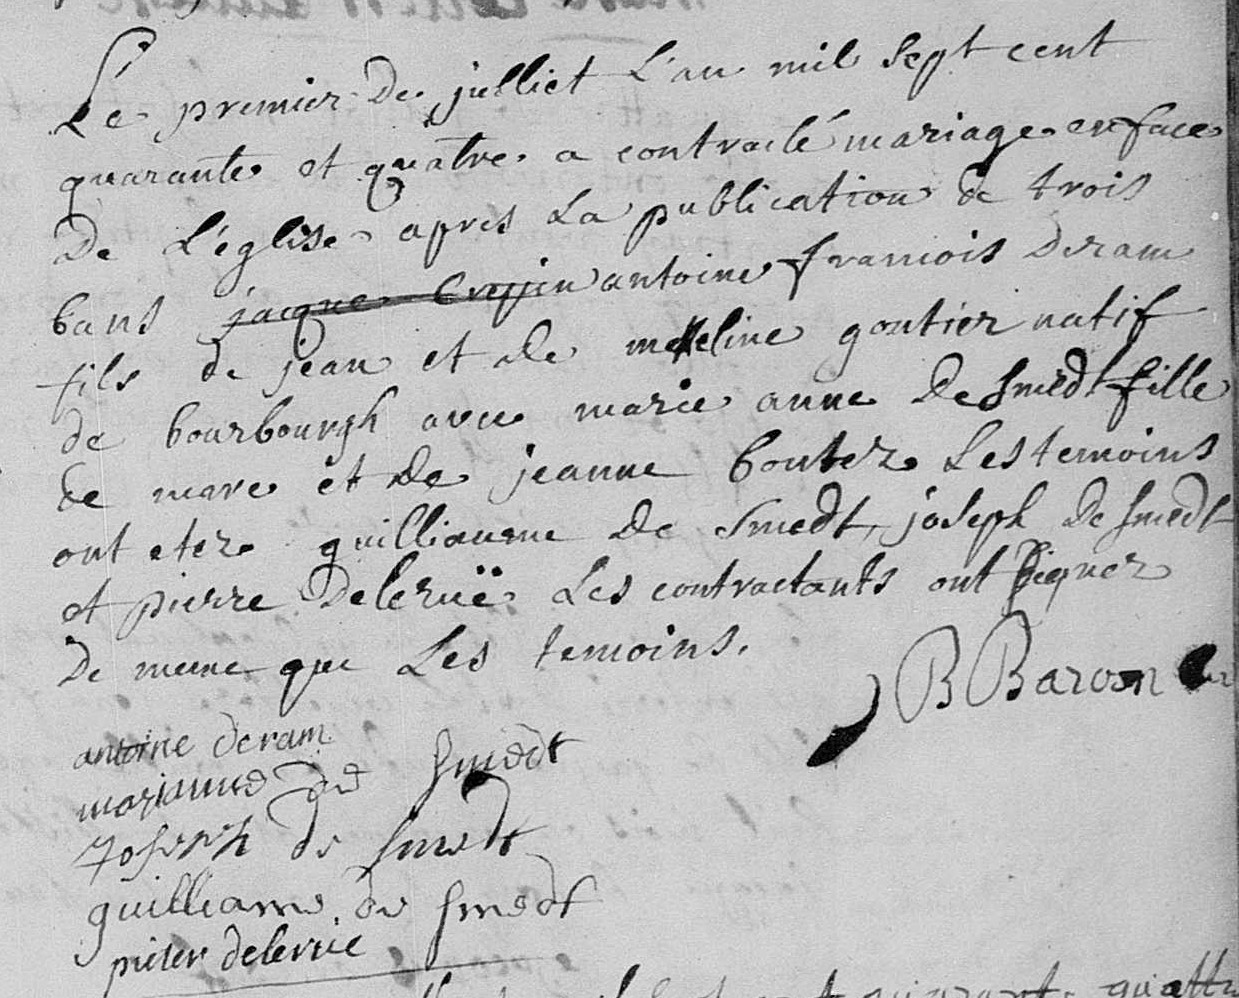 Le premier de julliet L'an mil sept cent
quarante et quatre a contracté mariage en face
de L'eglise apres La publication de trois
bans jacque Crepin antoine franiois Deram
fils de jean et de meline goutier natif
de bourbourgh avec marie anne De Smedt fille
de marc et de jeanne boutez Les temoins
ont etez guilliaume de Smedt, joseph de Smedt
et pierre Delerüe Les contractants ont signez
de meme que Les temoins.
B Baron
antoine deram
marianne de Smedt
Joseph de Smedt
guilliame de Smedt
pieter delerue